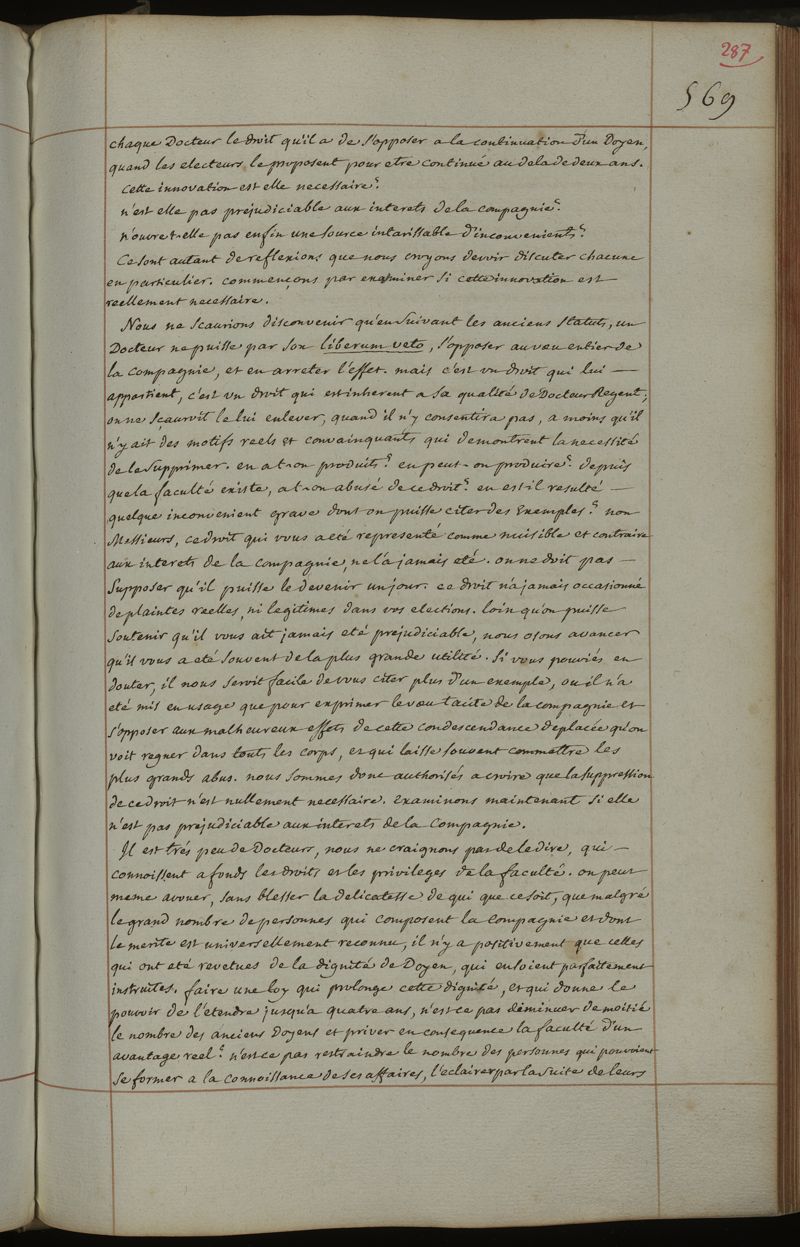 287
569
chaque Docteur le droit qu'il a de s'opposer a la continuation d'un Doyen,
quand les electeurs le proposent pour etre continué au dela de deux ans.
cette innovation est elle necessaire?
n'est elle pas prejudiciable aux interets de la compagnie?
n'ouvre t-elle pas enfin une source intarissable d'inconvenients?
Ce sont autant de reflexions que nous croyons devoir discuter chacune
en particulier. commençons par examiner si cette innovation est
reellement necessaire.
Nous ne scaurions disconvenir qu'en suivant les anciens statuts, un
Docteur ne puisse par son liberum veto, s'opposer au vœu entier de
la compagnie, et en arreter l'effet. mais c'est un droit qui lui —
appartient, c'est un droit qui est inherent a sa qualité de Docteur Regent;
on ne sçauroit le lui enlever, quand il n'y consentira pas, a moins qu'il
n'y ait des motifs reels et convainquants qui demontrent la necessité
de le supprimer. en a t-on produits? en peut-on produire? depuis
que la faculté existe, a t-on abusé de ce droit? en est-il resulté —
quelque inconvenient grave dont on puisse citer des exemples? non
Messieurs, ce droit qui vous a eté representé comme nuisible et contraire
aux interets de la compagnie, ne l'a jamais eté. on ne doit pas —
supposer qu'il puisse le devenir un jour. ce droit n'a jamais occasionné
de plaintes reelles, ni legitimes dans vos elections. loin qu'on puisse
soutenir qu'il vous ait jamais eté prejudiciable, nous osons avancer
qu'il vous a eté souvent de la plus grande utilité. Si vous pouviés en
douter, il nous seroit facile de vous citer plus d'un exemple, ou il n'a
eté mis en usage que pour exprimer le vœu tacite de la compagnie et
s'opposer aux malheureux effets de cette condescendance deplacée qu'on
voit regner dans touts les corps, et qui laisse souvent commettre les
plus grands abus. nous sommes donc authorisés a croire que la suppression
de ce droit n'est nullement necessaire. Examinons maintenant si elle
n'est pas prejudiciable aux interets de la Compagnie.
Il est trés peu de Docteurs, nous ne craignons pas de le dire, qui —
connoissent a fonds les droits et les privileges de la faculté. on peut
meme avouer, sans blesser la delicatesse de qui que ce soit, que malgré
le grand nombre de personnes qui composent la Compagnie et dont
le merite est universellement reconnu, il n'y a positivement que celles
qui ont eté revetues de la dignité de Doyen, qui en soient parfaitement
instruites. faire une loy qui prolonge cette dignité, et qui donne le
pouvoir de l'etendre jusqu'a quatre ans, n'est ce pas diminuer de moitié
le nombre des anciens Doyens et priver en consequence la faculté d'un
avantage reel? n'est ce pas restraindre le nombre des personnes qui pouvoient
se former a la connoissance de ses affaires, l'eclairer par la suite de leurs